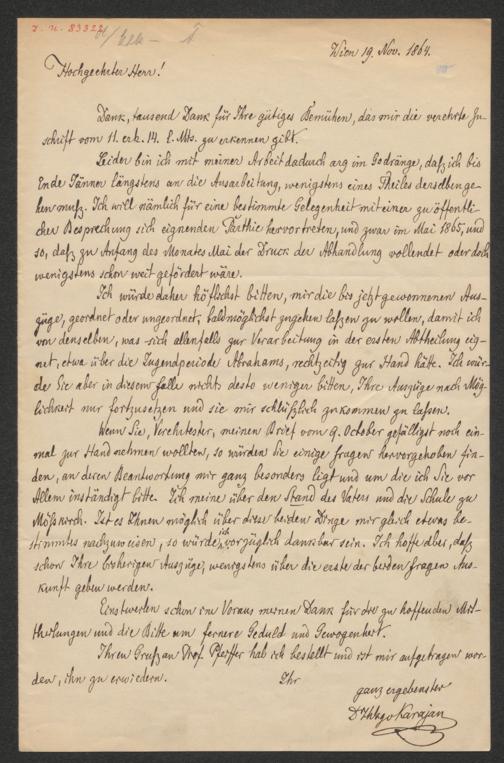 I. N. 83322
Wien 19. Nov. 1864.
Hochgeehrter Herr!
Dank, tausend Dank für Ihre gütiges Bemühen, das mir die verehrte Zu-
schrift vom 11. erh. 14. l. Mts. zu erkennen gibt.
Leider bin ich mit meiner Arbeit dadurch arg im Gedränge, daß ich bis
Ende Jänner längstens an die Ausarbeitung, wenigstens eines Theiles derselben ge-
hen muß. Ich will nämlich für eine bestimmte Gelegenheit mit einer zu öffentli-
cher Besprechung sich eignenden Parthie hervortreten, und zwar im Mai 1865, und
so, daß zu Anfang des Monates Mai der Druck der Abhandlung vollendet oder doch
wenigstens schon weit gefördert wäre.
Ich würde daher höflichst bitten, mir die bis jetzt gewonnenen Aus-
züge, geordnet oder ungeordnet, baldmöglichst zugehen laßen zu wollen, damit ich
von denselben, was sich allenfalls zur Verarbeitung in der ersten Abtheilung eig-
net, etwa über die Jugendperiode Abrahams, rechtzeitig zur Hand hätte. Ich wür-
de Sie aber in diesem falle nichts desto weniger bitten, Ihre Auszüge nach Mög-
lichkeit nur fortzusetzen und sie mir schlüßlich zukommen zu laßen.
Wenn Sie, Verehrtester, meinen Brief vom 9. October gefälligst noch ein-
mal zur Hand nehmen wollten, so würden Sie einige fragen hervorgehoben fin-
den, an deren Beantwortung mir ganz besonders ligt und um die ich Sie vor
Allem inständigst bitte. Ich meine über den Stand des Vaters und die Schule zu
Mößkirch. Ist es Ihnen möglich über diese beiden Dinge mir gleich etwas be-
stimmtes nachzuweisen, so würde ich vorzüglich dankbar sein. Ich hoffe aber, daß
schon Ihre bisherigen Auszüge, wenigstens über die erste der beiden fragen Aus-
kunft geben werden.
Einstweilen schon im Voraus meinen Dank für die zu hoffenden Mit-
theilungen und die Bitte um fernere Geduld und Gewogenheit.
Ihren Gruß an Prof. Pfeiffer hab ich bestellt und ist mir aufgetragen wor-
den, ihn zu erwiedern.
Ihr
ganz ergebenster
Karajan